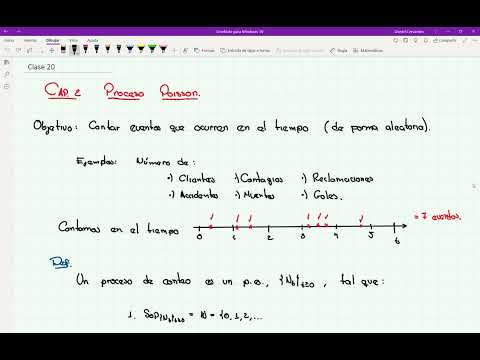 OneNote para Windows 10
Archivo Inicio Insertar Dibujar Vista Ayuda
Compartir
Formas
Entrada de lápiz a formas
Entrada de lápiz a texto
Matemáticas
Clase 20
CAP. 2 Proceso Poisson.
Objetivo: Contar eventos que ocurren en el tiempo (de forma aleatoria).
Ejemplos: Número de:
·) Clientes ·) Contagios ·) Reclamaciones
·) Accidentes ·) Muertes ·) Goles.
Contamos en el tiempo 0 1 2 3 4 5 6 = 7 eventos.
Def.
Un proceso de conteo es un p.e., {Nt}t≥0, tal que:
1. Sop{Nt}t≥0 = ℕ = {0, 1, 2, ...